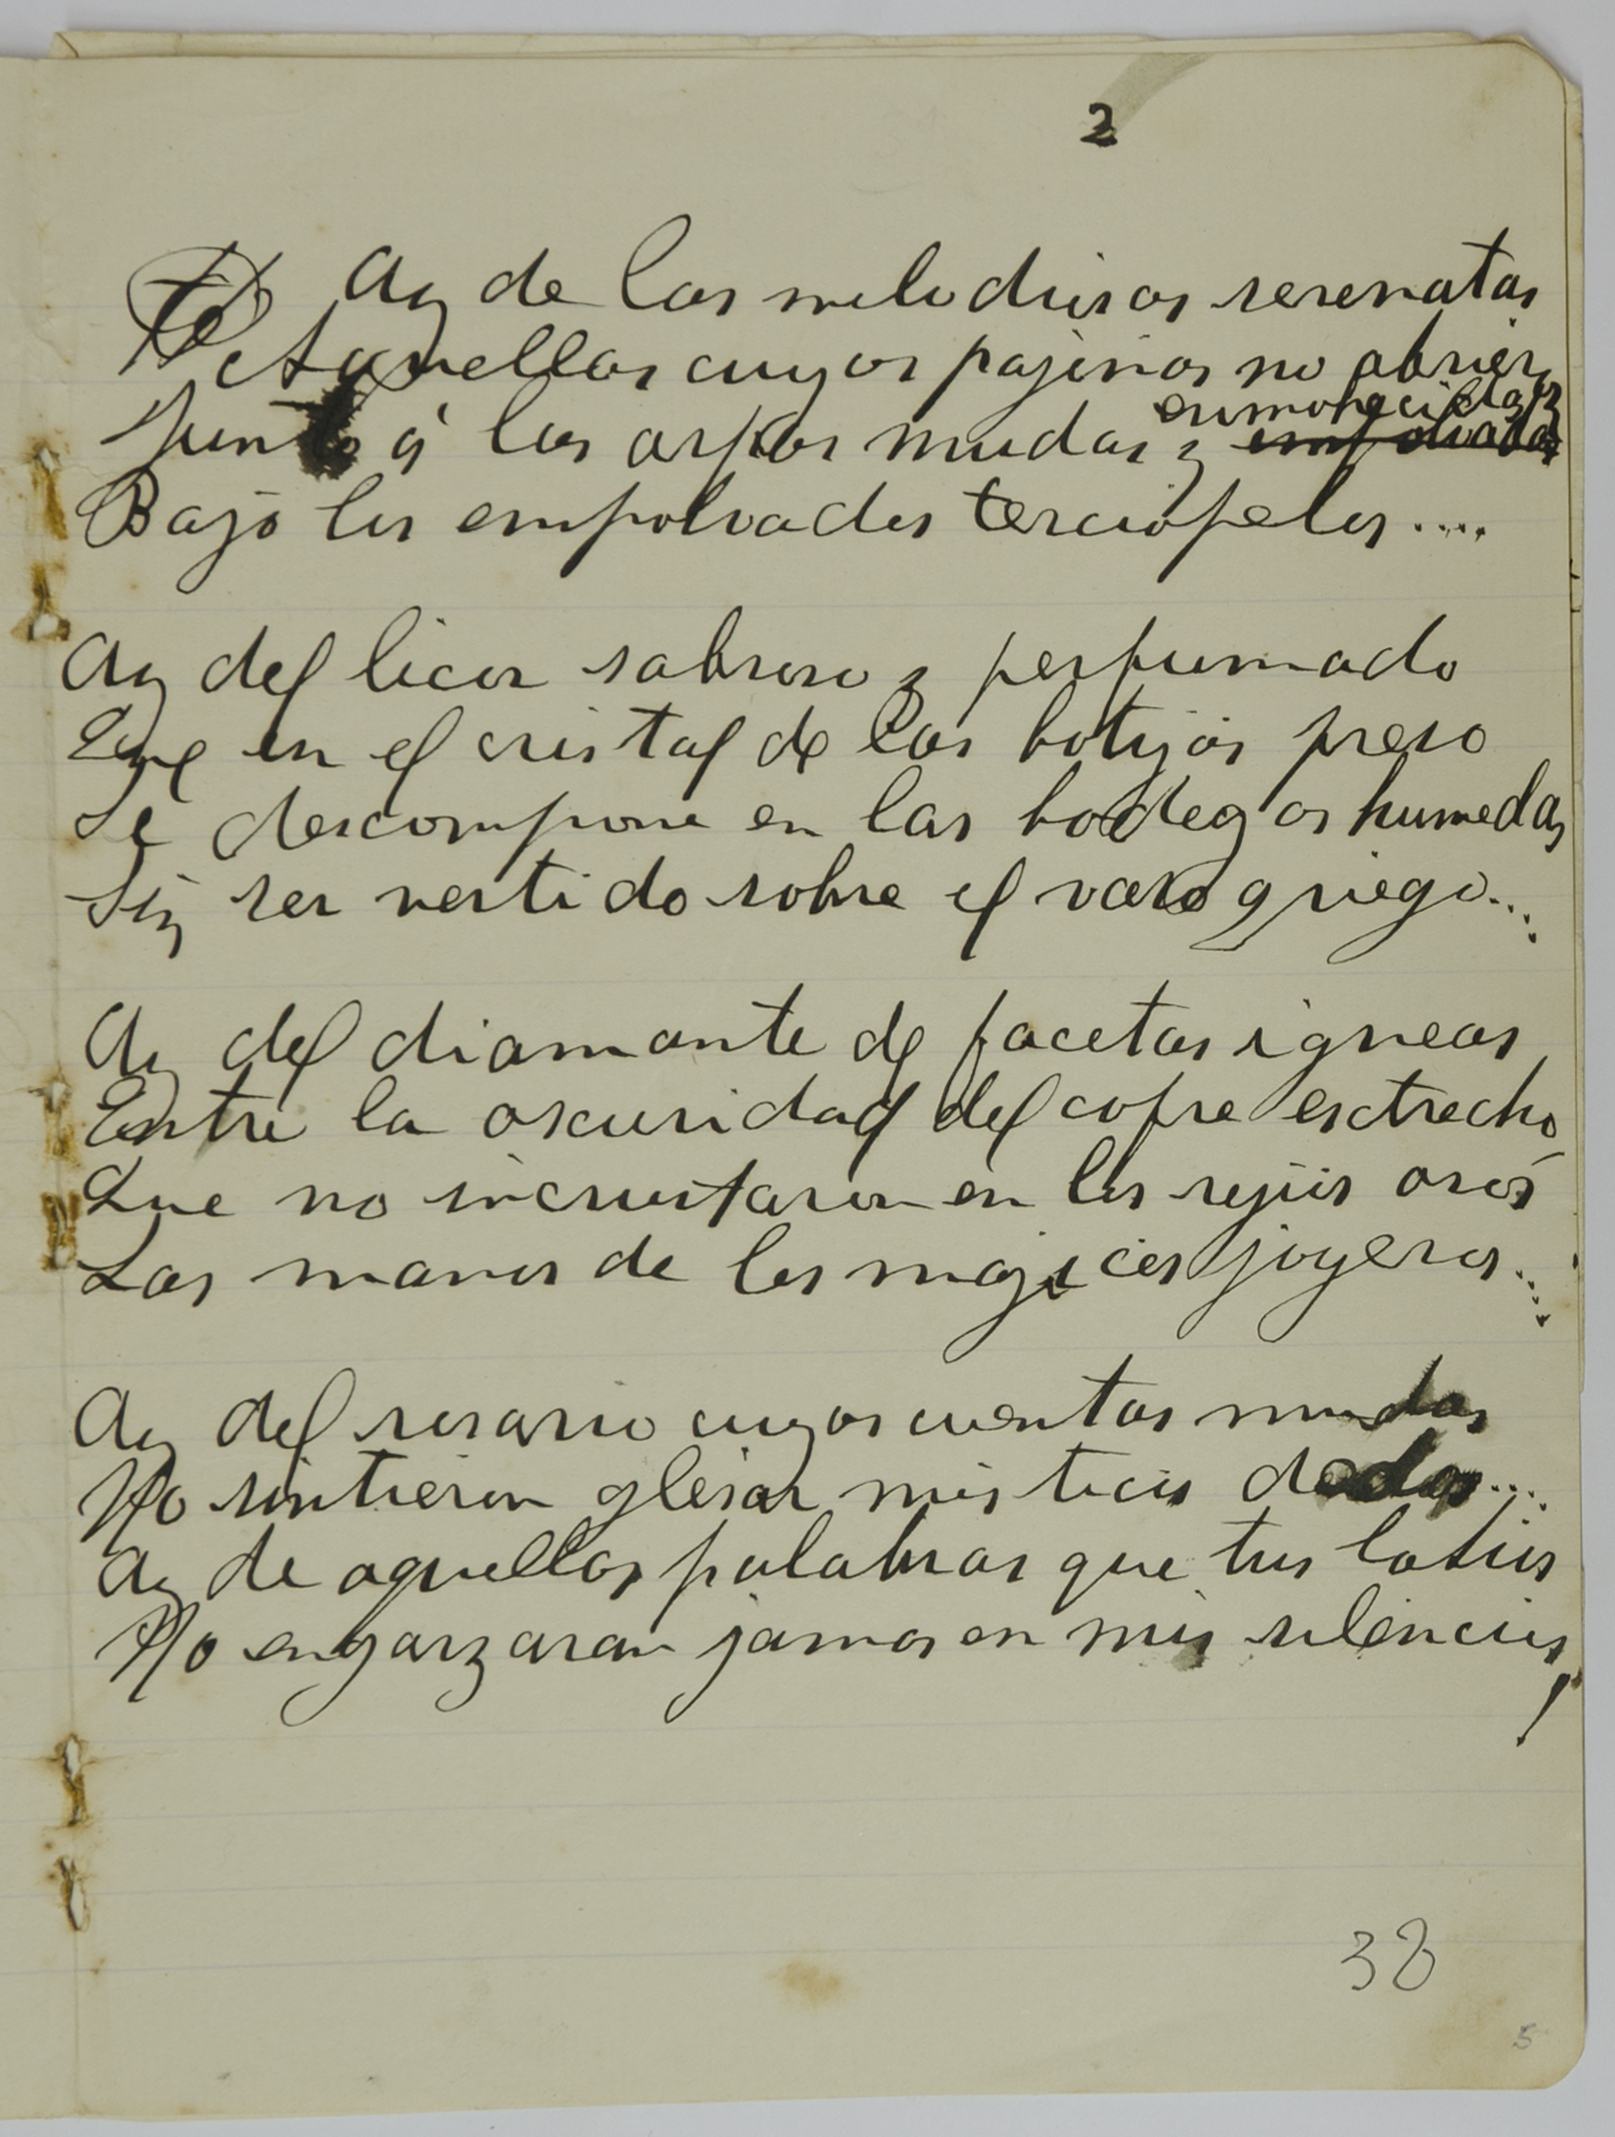 2
Ay de las melodiosas serenatas
Aquellas cuyas pajinas no abrier
enmohecidas
Junto á las arpas mudas y empolvadas
Bajo los empolvados terciopelos....
Ay del licor sabroso y perfumado
Que en el cristal de las botijas preso
Se descompone en las bodegas humedas
Sin ser vertido sobre el vaso griego....
Ay del diamante de facetas igneas
Entre la oscuridad del cofre estrecho
Que no incrustaron en los rejios oros
Las manos de los majicos joyeros....
Ay del rosario cuyas cuentas mudas
No sintieron glisar misticos dedos....
Ay de aquellas palabras que tus labios
No engarzaran jamas en mis silencios!
38
5